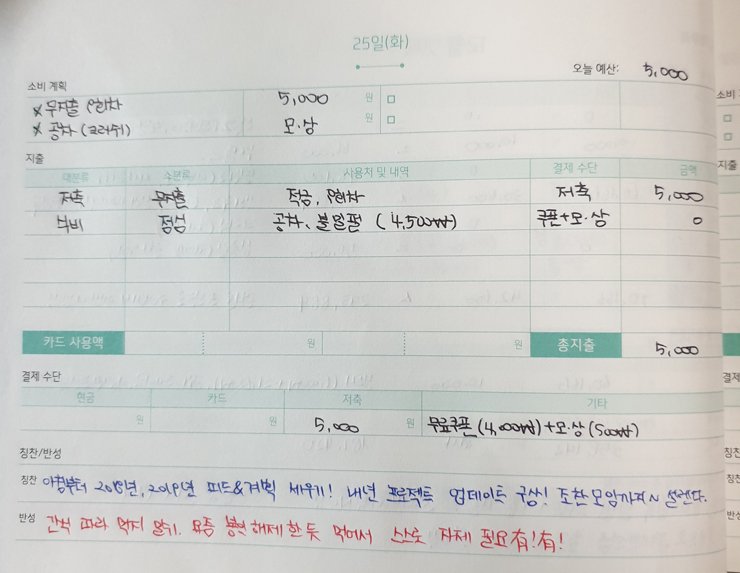 25일(화)
오늘 예산: 5,000
소비 계획
× 무지출 8회차 5,000 원 □
× 공차 (크러쉬) 모·상 원 □
지출
대분류 소분류 사용처 및 내역 결제 수단 금액
저축 무지출 적금, 8회차 저축 5,000
식비 점심 공차, 불일펄 (4,500₩) 쿠폰+모·상 0
카드 사용액 원 원 총지출 5,000
결제 수단
현금 카드 저축 기타
원 원 5,000 원 무료쿠폰 (4,000₩)+모·상 (500₩)
칭찬/반성
칭찬 아침부터 2018년, 2019년 피드&계획 세우기! 내년 프로젝트 업데이트 구상! 조찬모임까지~ 설렌다.
반성 간식 따라 먹지 않기. 요즘 봉인해제한 듯 먹어서 스스로 자제 필요有!有!
소비
□
□
지출
결제
칭찬
칭찬
반성